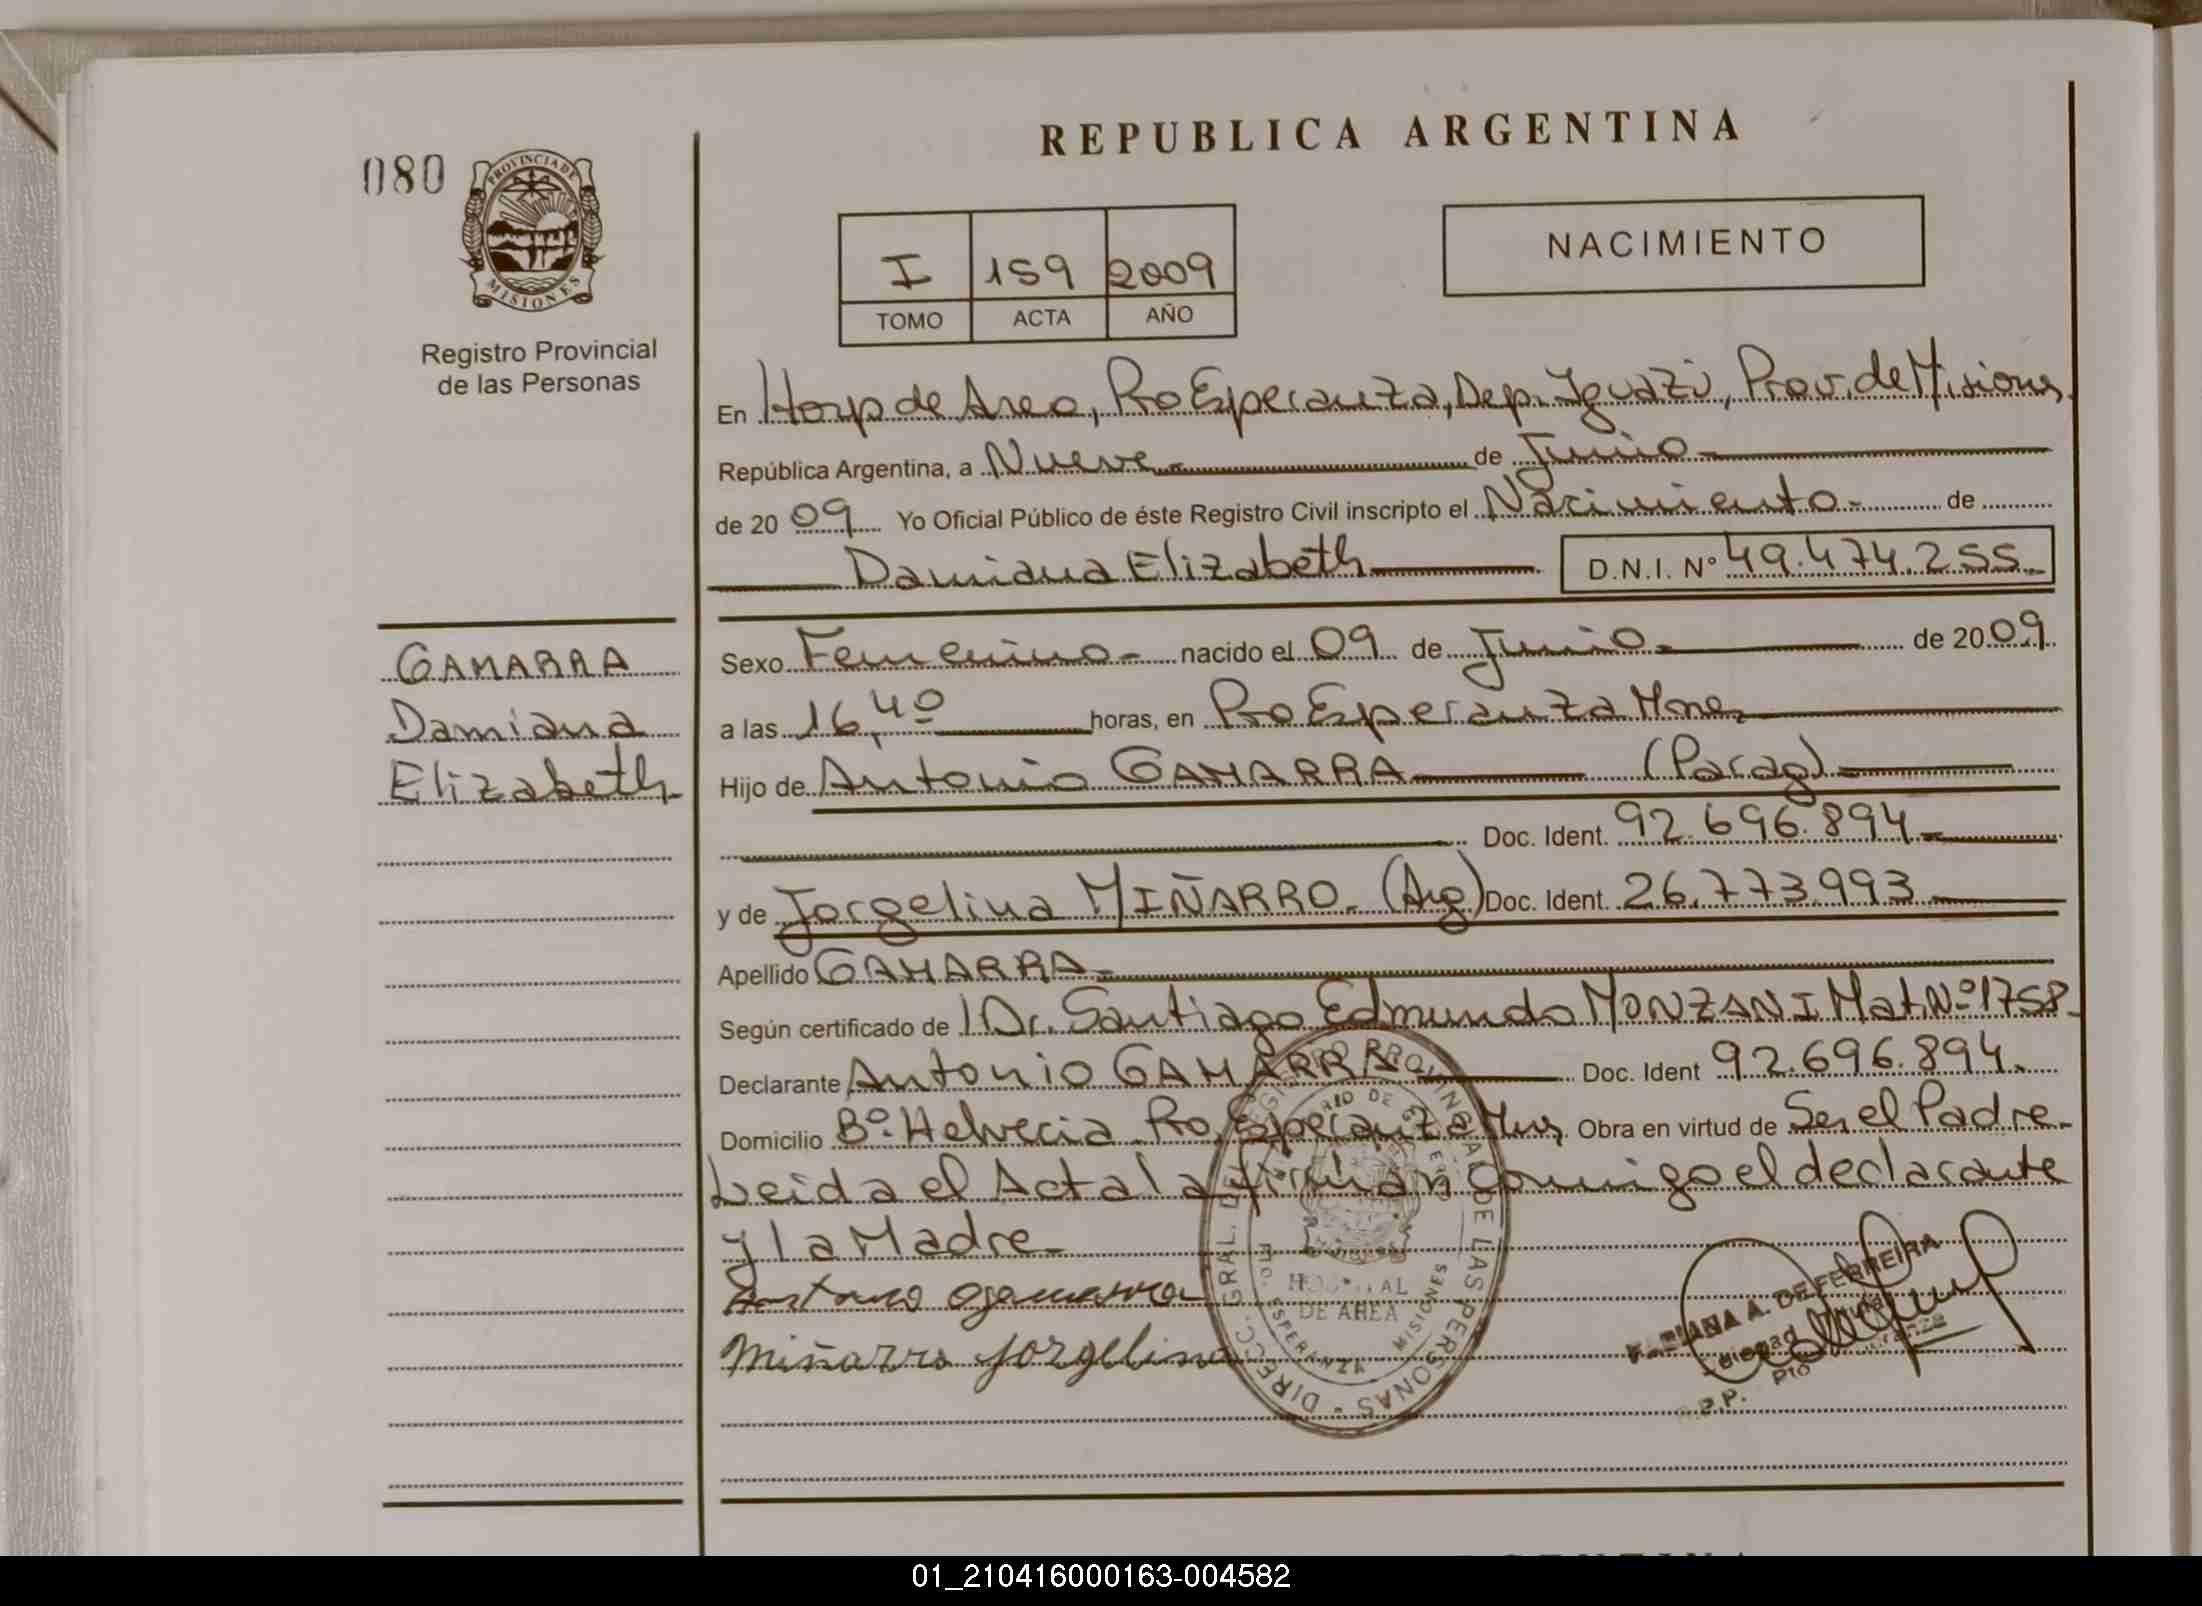 REPUBLICA ARGENTINA
080
PROVINCIA DE
MISIONES
Registro Provincial
de las Personas
I 159 2009
TOMO ACTA AÑO
NACIMIENTO
En Hosp de Area, Pto Esperanza, Dep. Iguazú, Prov. de Misiones.
República Argentina, a Nueve de Junio
de 2009 Yo Oficial Público de éste Registro Civil inscripto el Nacimiento de
Damiana Elizabeth D.N.I. Nº 49.474.255
GAMARRA
Damiana
Elizabeth
Sexo Femenino nacido el 09 de Junio de 2009
a las 16,40 horas, en Pto Esperanza Mnes
Hijo de Antonio GAMARRA (Parag)
Doc. Ident. 92.696.894
y de Jorgelina MIÑARRO. (Arg) Doc. Ident. 26.773.993
Apellido GAMARRA
Según certificado de Dr. Santiago Edmundo MONZANI Mat. Nº 1758
Declarante Antonio GAMARRA Doc. Ident 92.696.894.
Domicilio Bº. Helvecia Pto. Esperanza Mns Obra en virtud de Ser el Padre
Leida el Acta la firman Conmigo el declarante
y la Madre
Antonio gamarra
Miñarro jorgelina
DIRECC. GRAL. DE REGISTRO PROVINCIAL DE LAS PERSONAS
HOSPITAL
DE AREA
ESPERANZA MISIONES
A. DE FERREIRA
01_210416000163-004582